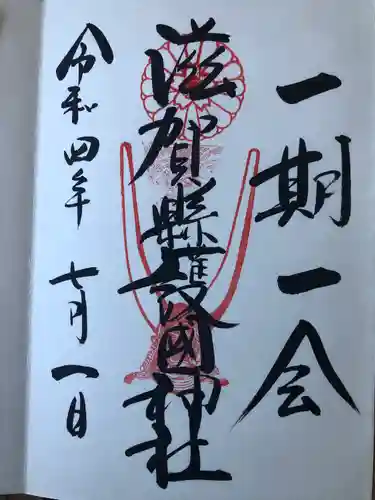 一期一会
滋賀縣護國神社
令和四年 七月一日